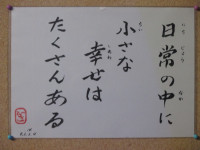 日常の中に
小さな
幸せは
たくさんある